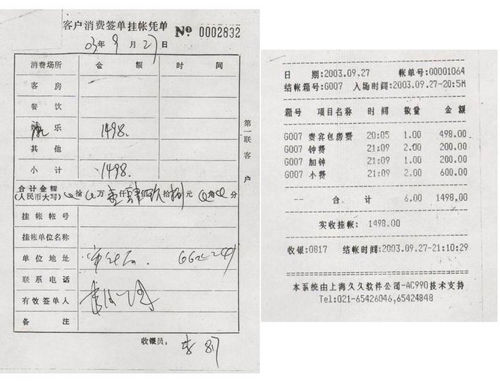 客户消费签单挂帐凭单 № 0002832
03年9月27日
消费场所 金额 时间
客房
餐饮
娱乐 1498.
其他
小计 1498.
合计金额
(人民币大写) 拾 万 壹仟肆佰玖拾捌元 角 分
挂帐帐号
挂帐单位名称
单位地址
联系电话
有效签单人
备注
收银员:
第一联 客户
日 期:2003.09.27 帐单号:00001064
结帐箱号:G007 入场时间:2003.09.27-20:5M
箱号 项目名称 时间 数量 金额
G007 贵宾包房费 20:05 1.00 498.00
G007 钟费 21:09 2.00 200.00
G007 加钟 21:09 2.00 200.00
G007 小费 21:09 2.00 600.00
-- 合 计 6.00 1498.00
实收挂帐: 1498.00
收银:0817 结帐时间:2003.09.27-21:10:29
本系统由上海久久软件公司-AC990技术支持
Tel:021-65426046,65424848